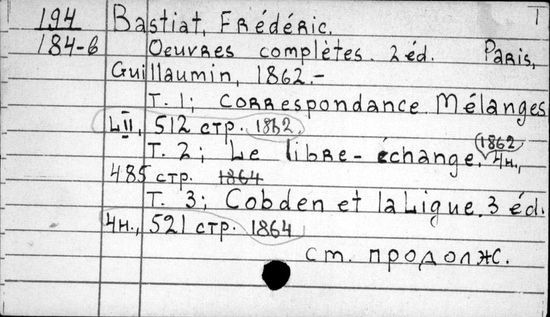 194 Bastiat, Frédéric. 1
184-6 Oeuvres complètes. 2 éd. Paris,
Guillaumin, 1862.-
Т. 1; Correspondance Mélanges
LII, 512 стр. 1862
Т. 2; Le libre-échange. 1862 4н.,
485 стр. 1864
Т. 3; Cobden et la Ligue. 3 éd.
4н., 521 стр. 1864
см. продолж.